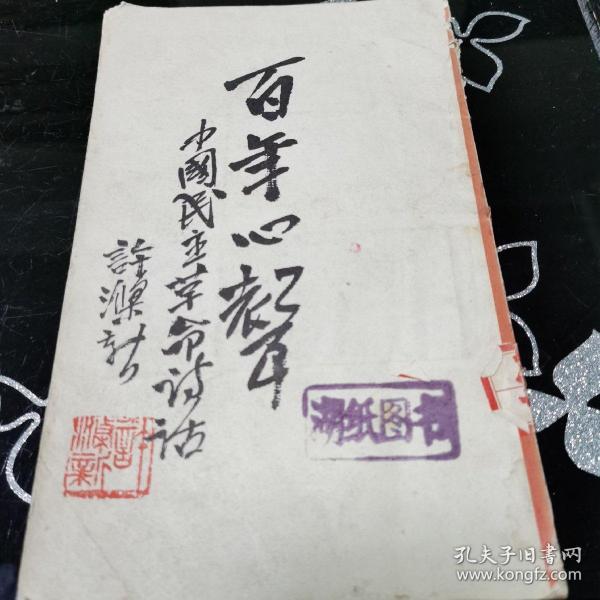 百年心聲
中國民主革命詩話
許滌新
許滌新
湖纸图书
孔夫子旧书网
www.kongfz.com